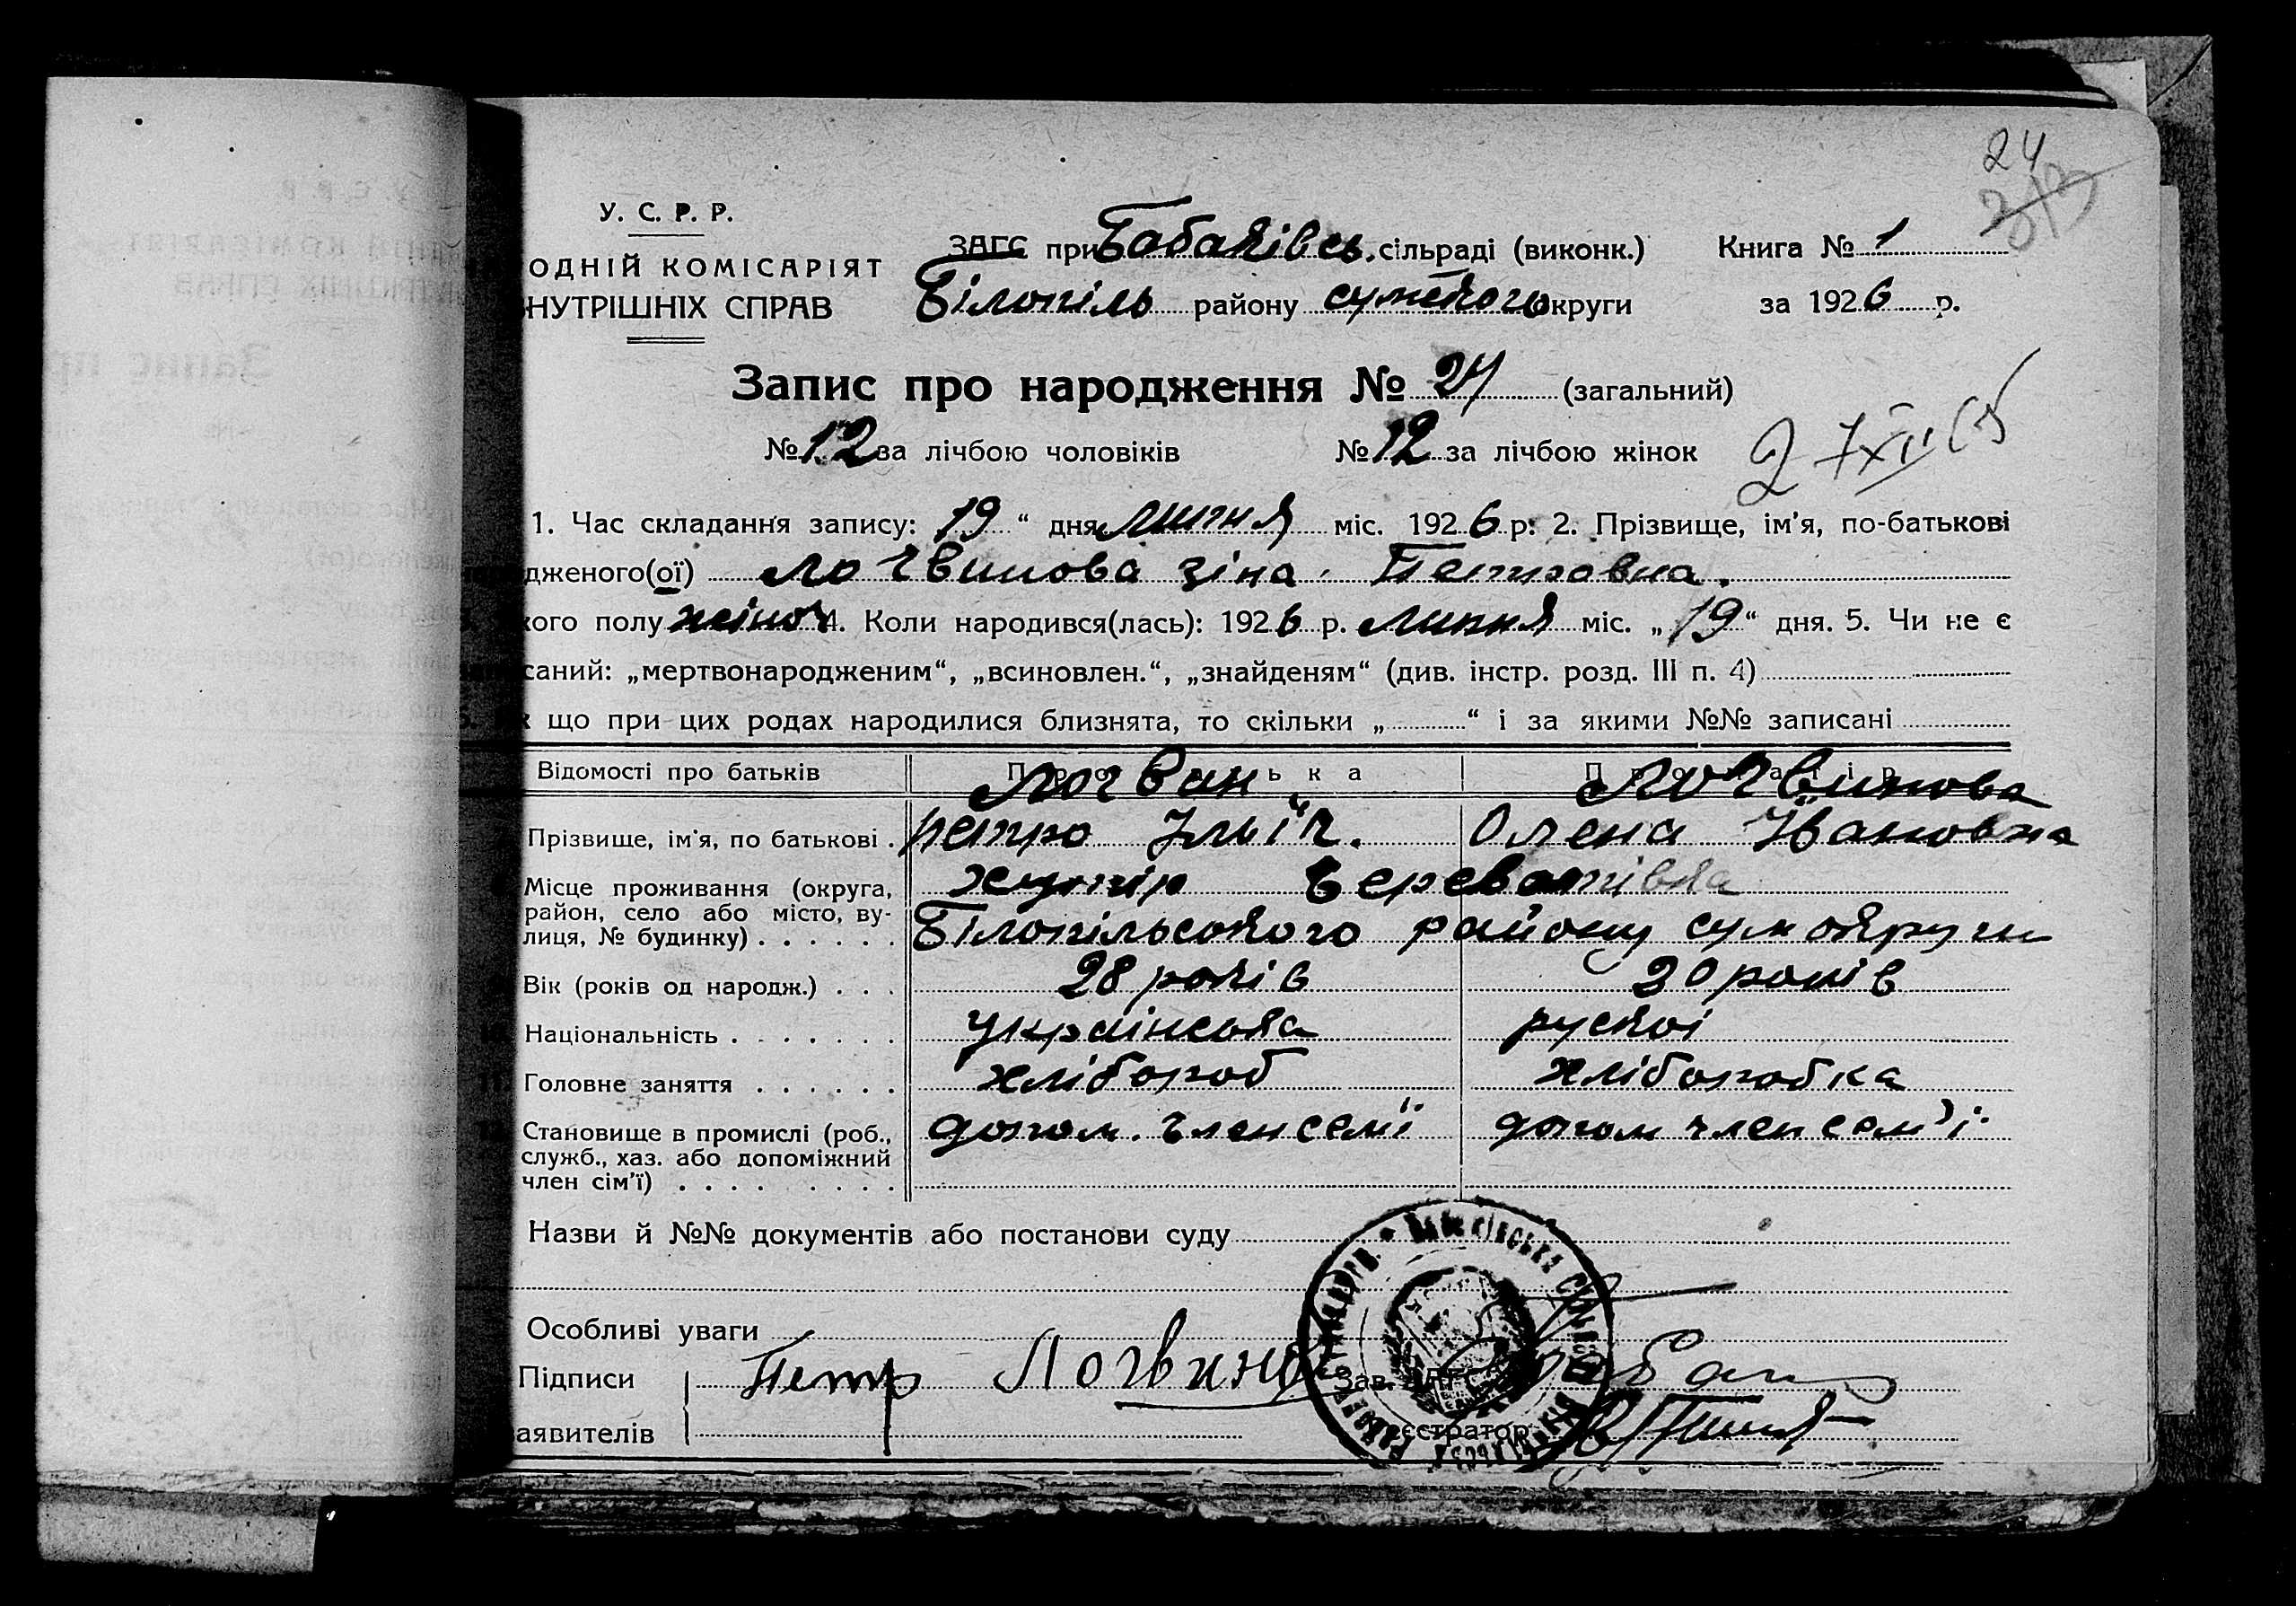 24
313
У. С. Р. Р.
ОДНІЙ КОМІСАРІЯТ
НУТРІШНІХ СПРАВ
ЗАГС при Бабаківсь. сільраді (виконк.) Книга № 1
Білопіль району сумського округи за 1926 р.
Запис про народження № 24 (загальний)
№ 12 за лічбою чоловіків № 12 за лічбою жінок
1. Час складання запису: 19 “ дня липня міс. 1926 р. 2. Прізвище, ім’я, по-батькові
дженого(ої) Логвинова Зіна Петровна.
кого полу жіноч 4. Коли народився(лась): 1926 р. липня міс. „19“ дня. 5. Чи не є
саний: „мертвонародженим“, „всиновлен.“, „знайденям“ (див. інстр. розд. III п. 4)
що при цих родах народилися близнята, то скільки „ “ і за якими №№ записані
Відомості про батьків Логвин Логвинова
Прізвище, ім’я, по батькові . петро Ільїч. Олена Івановна
Місце проживання (округа, хутір
район, село або місто, ву-
лиця, № будинку) . . . . . . Білопільського району сумокруги
Вік (років од народж.) . . . 28 років 30 років
Національність . . . . . . . українська руској
Головне заняття . . . . . . хлібороб хліборобка
Становище в промислі (роб., допом. член семїї допом член сем’ї
служб., хаз. або допоміжний
член сім’ї) . . . . . . . .
Назви й №№ документів або постанови суду
Особливі уваги
Підписи Петр Логвинов Зав.
аявителів еєстратор